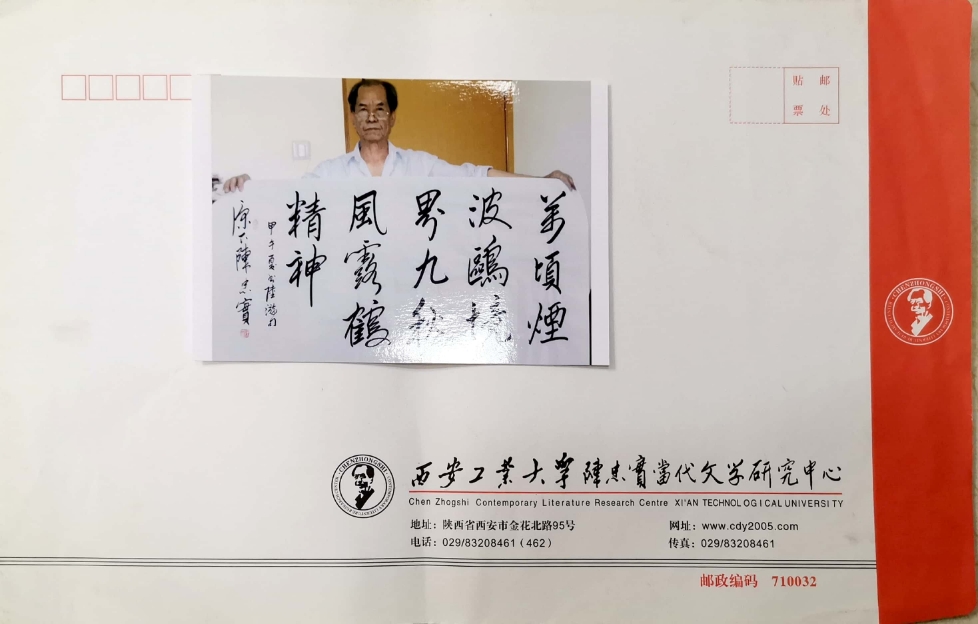 贴 邮
票 处
萬頃煙
波鷗境
界九秋
風露鶴
精神
甲午夏书陸游句
原下陳忠實
CHENZHONGSHI
CHENZHONGSHI
西安工业大學陳忠實當代文学研究中心
Chen Zhogshi Contemporary Literature Research Centre XI'AN TECHNOLOGICAL UNIVERSITY
地址：陕西省西安市金花北路95号
网址：www.cdy2005.com
电话：029/83208461（462）
传真：029/83208461
邮政编码 710032